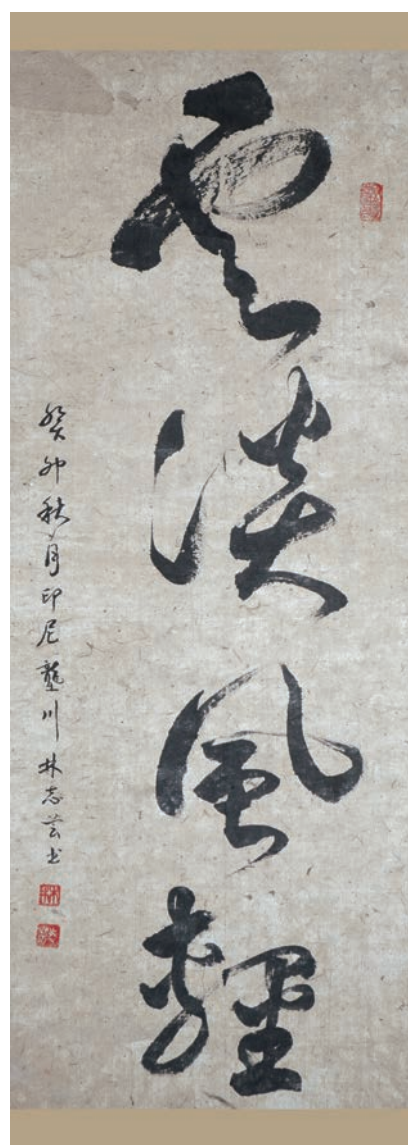 雲淡風輕
癸卯秋月印尼壟川林志芸书